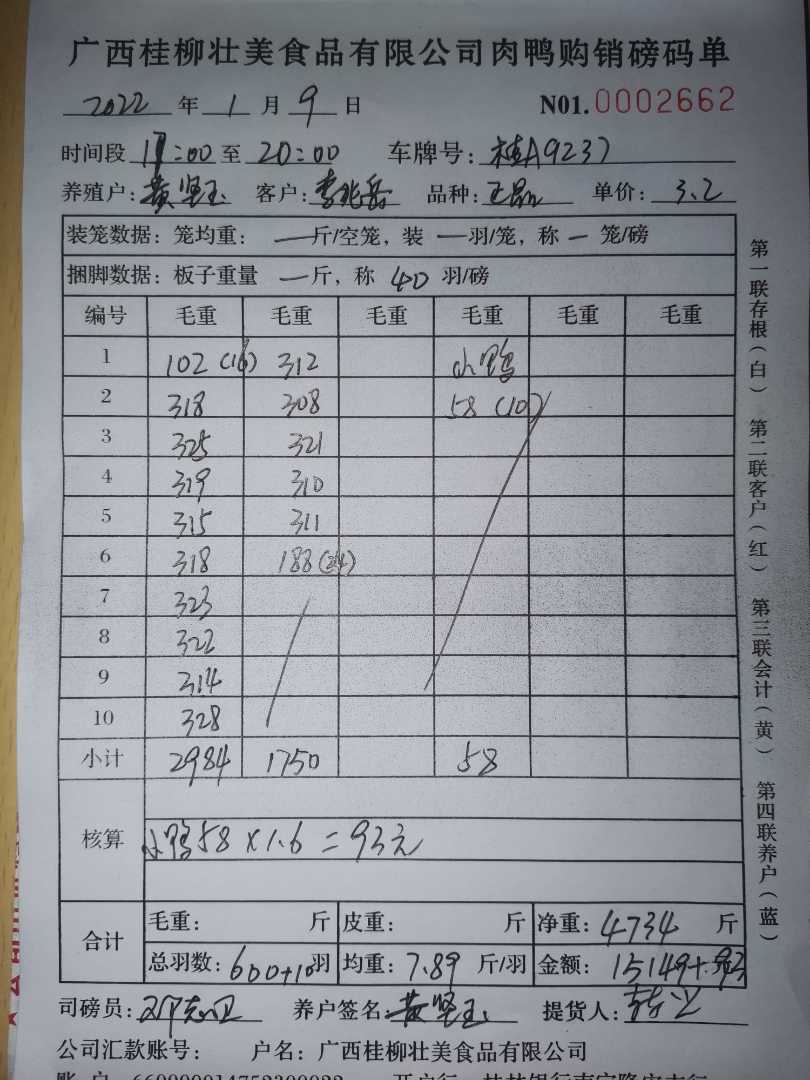 广西桂柳壮美食品有限公司肉鸭购销磅码单
2022 年 1 月 9 日 N01. 0002662
时间段 17:00 至 20:00 车牌号: 桂A9237
养殖户: 黄坚玉 客户: 李兆岳 品种: 正品 单价: 3.2
装笼数据: 笼均重: — 斤/空笼, 装 — 羽/笼, 称 — 笼/磅
捆脚数据: 板子重量 — 斤, 称 40 羽/磅
编号 毛重 毛重 毛重 毛重 毛重 毛重
1 102 (16) 312 小鸭
2 318 308 58 (10)
3 325 321
4 319 310
5 315 311
6 318 188 (24)
7 323
8 322
9 314
10 328
小计 2984 1750 58
核算
小鸭 58 × 1.6 = 93元
合计
毛重: 斤 皮重: 斤 净重: 4734 斤
总羽数: 600+10 羽 均重: 7.89 斤/羽 金额: 15149+93
司磅员: 养户签名: 黄坚玉 提货人:
公司汇款账号: 户名: 广西桂柳壮美食品有限公司
第一联存根(白) 第二联客户(红) 第三联会计(黄) 第四联养户(蓝)